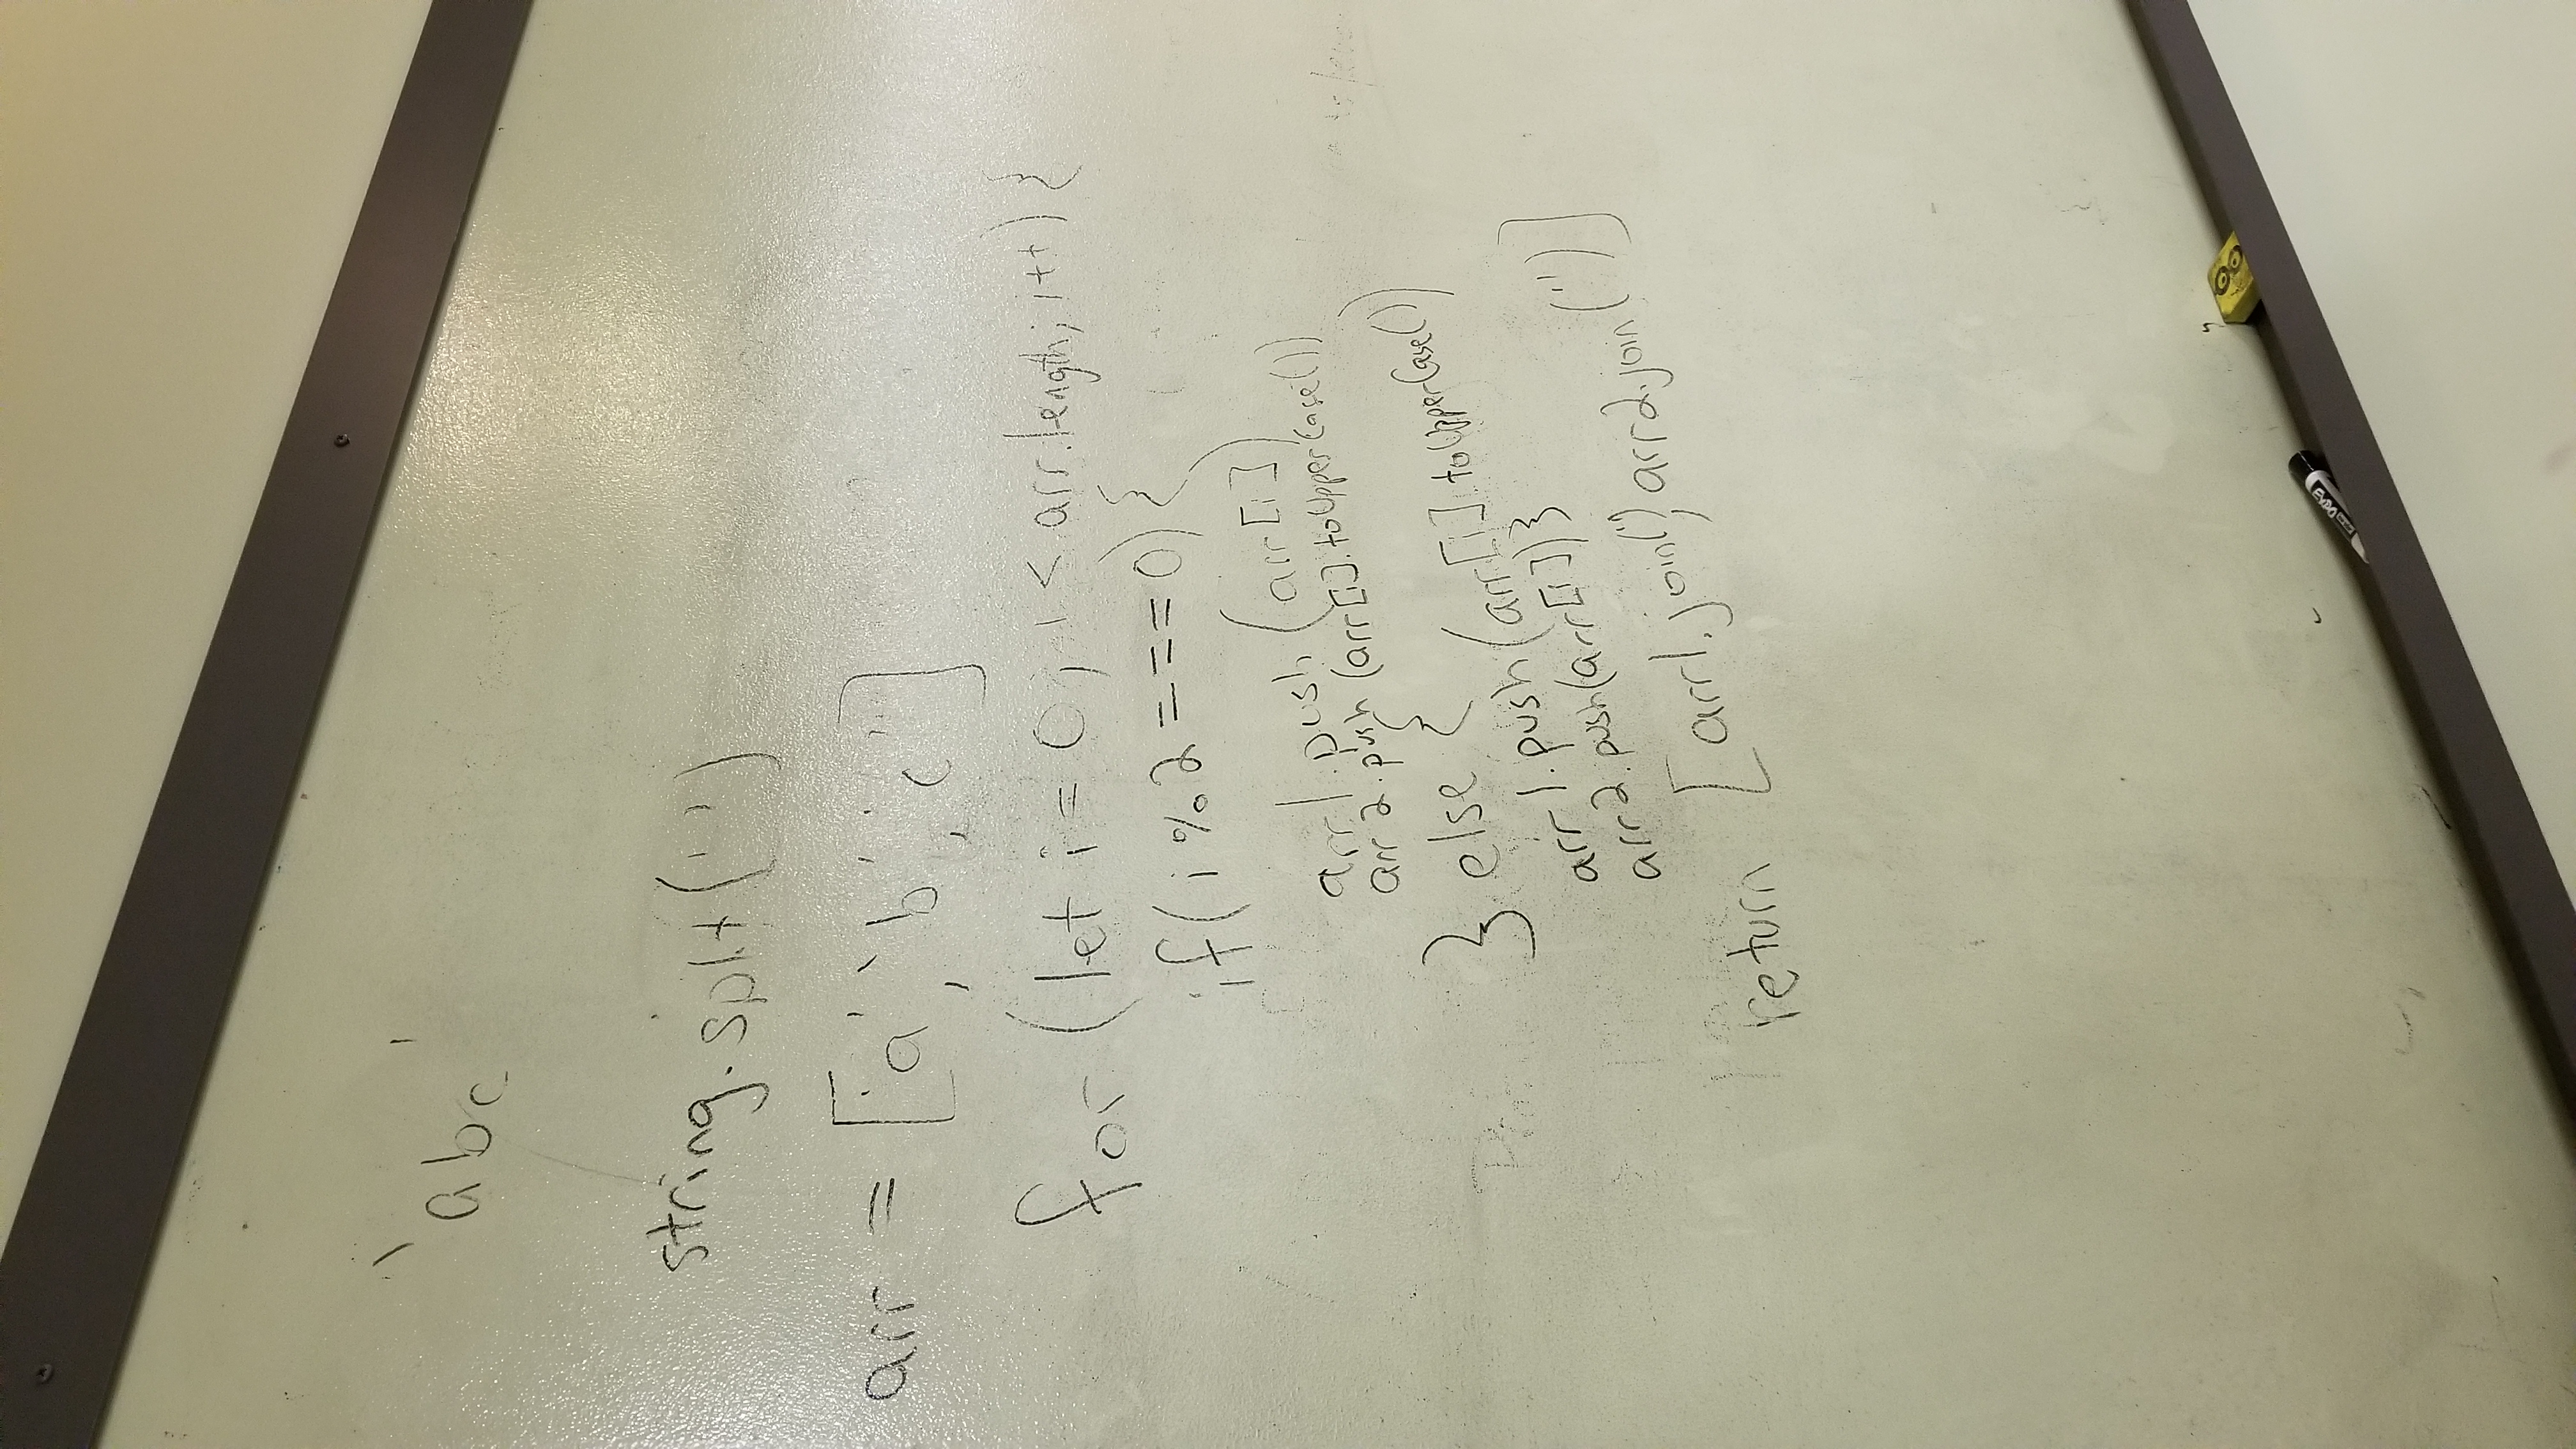 'abc'
string.split('')
arr = ['a', 'b', 'c']
for (let i = 0; i < arr.length; i++) {
if(i % 2 === 0) {
arr1.push(arr[i])
arr2.push(arr[i].toUpperCase())
} else {
arr1.push(arr[i].toUpperCase())
arr2.push(arr[i])}
return [arr1.join(''), arr2.join('')]
EXPO